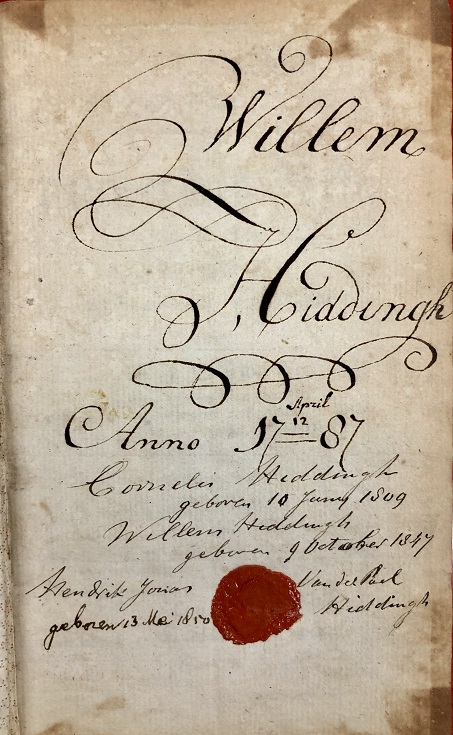 Willem
Hiddingh
Anno 17 April 12 87
Cornelis Hiddingh
geboren 10 Juny 1809
Willem Hiddingh
geboren 9 October 1847
Hendrik Jonas Van der Poel
Hiddingh
geboren 13 Mei 1850